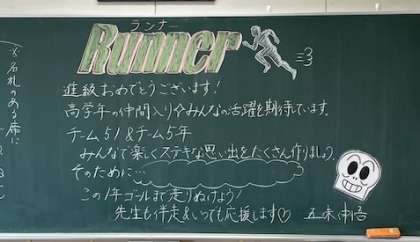 ランナー
Runner
進級おめでとうございます!
高学年の仲間入り☆みんなの活躍を期待しています。
チーム51&チーム5年
みんなで楽しくステキな思い出をたくさん作りましょう。
そのために…
この1年ゴールまで走りぬけよう!
先生も伴走&いつでも応援します♡
名札のある席に